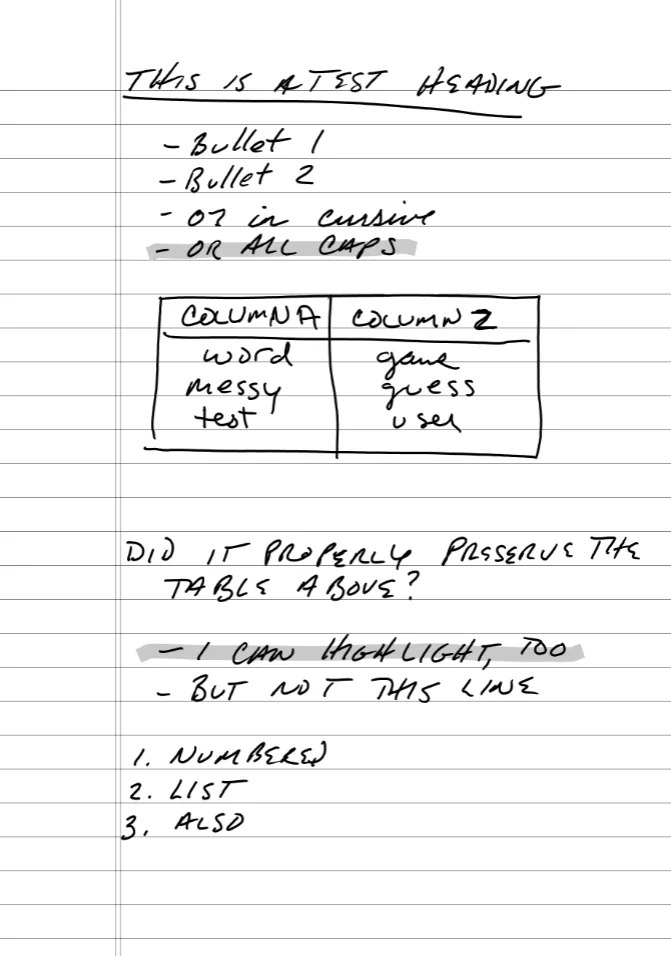 THIS IS A TEST HEADING
- Bullet 1
- Bullet 2
- or in cursive
- OR ALL CAPS
COLUMN A COLUMN 2
word game
messy guess
test user
DID IT PROPERLY PRESERVE THE
TABLE ABOVE?
- I CAN HIGHLIGHT, TOO
- BUT NOT THIS LINE
1. NUMBERED
2. LIST
3. ALSO